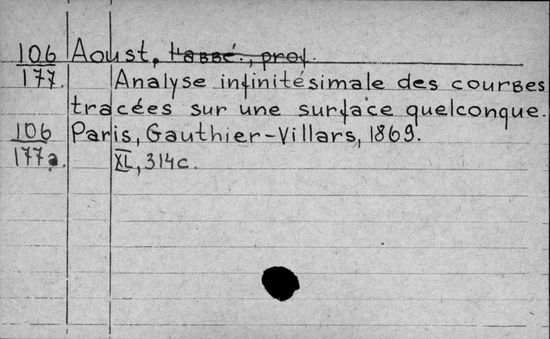 106 Aoust, l'abbé., prof.
177. Analyse infinitésimale des courbes
tracées sur une surface quelconque.
106 Paris, Gauthier-Villars, 1869.
177a. XL, 314c.